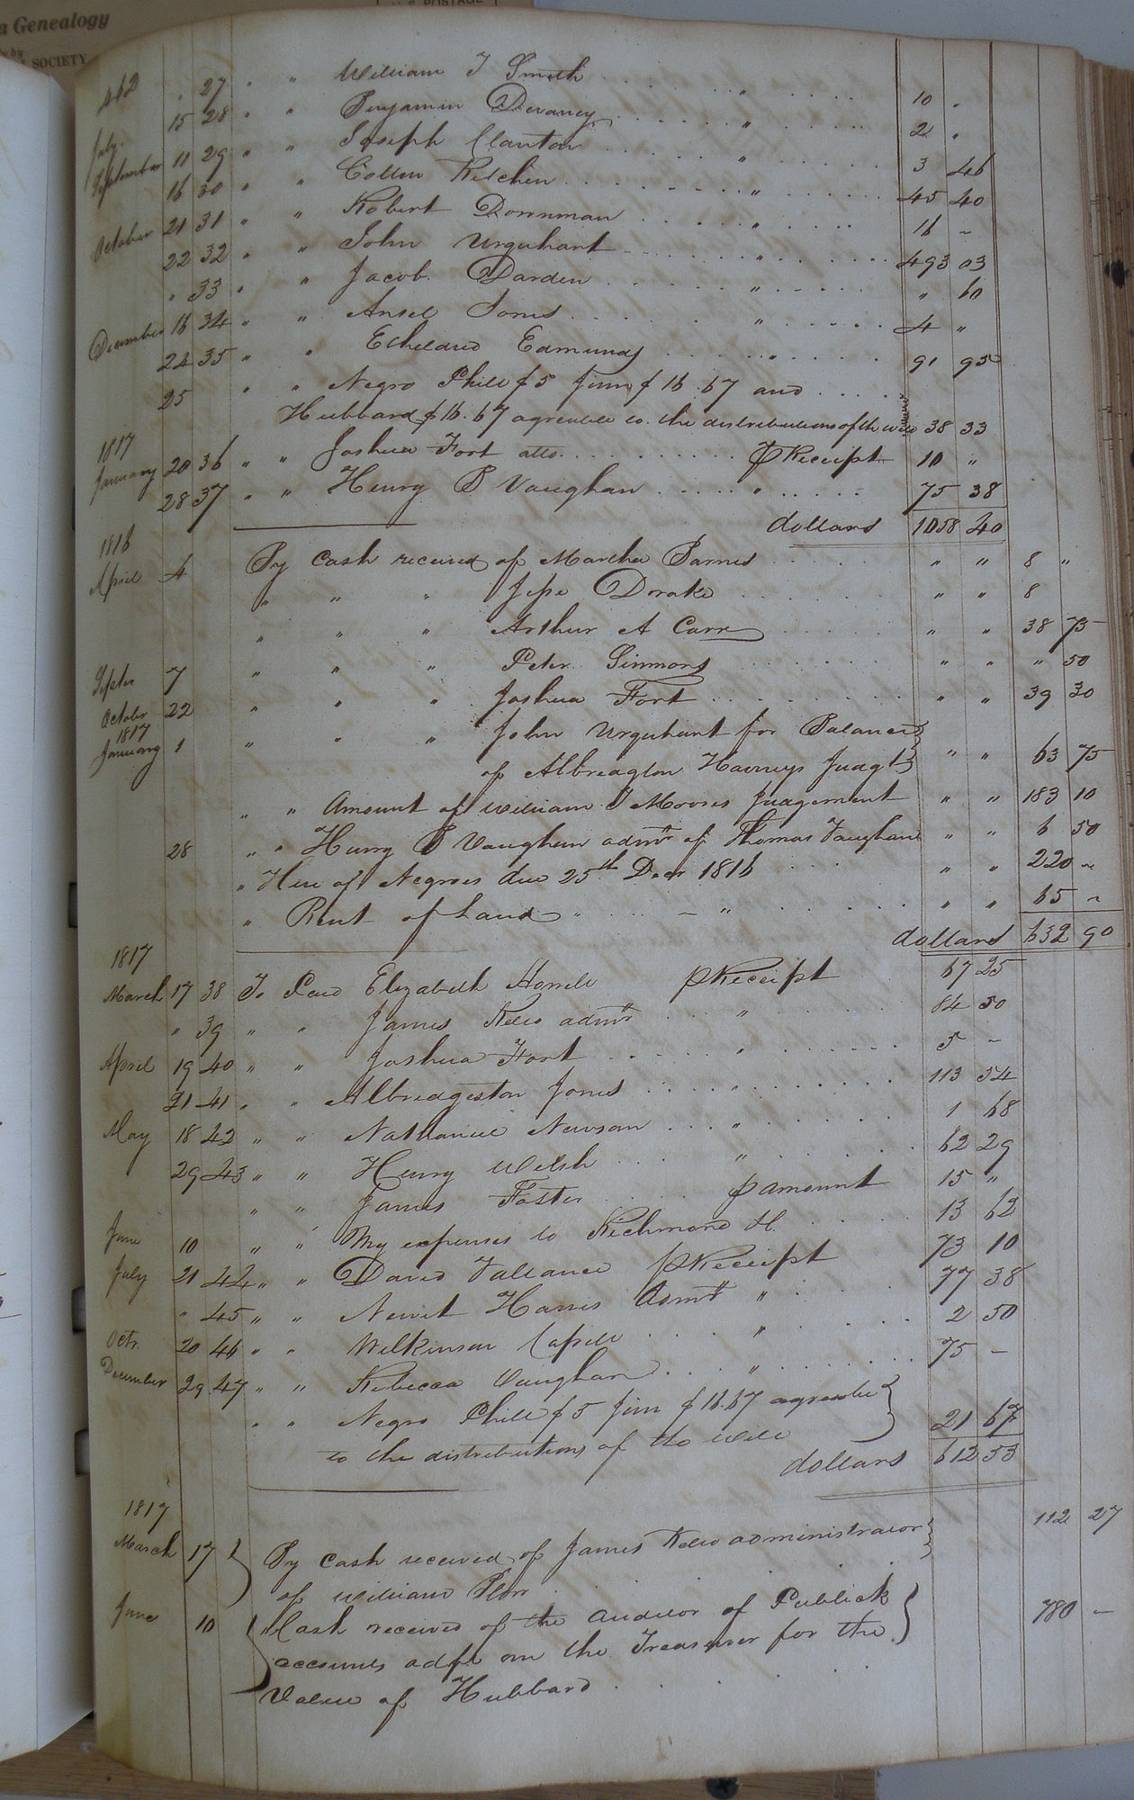 a Genealogy
SOCIETY
POSTAGE
462
" 27 " " William T Smith " 10 "
July 15 28 " " Benjamin Devaney " 2 "
September 11 29 " " Joseph Clanton " 3 46
16 30 " " Kitchen " 45 40
October 21 31 " " Robert Downman " 16 "
22 32 " " John Urquhart " 493 03
" 33 " " Jacob Darden " " 60
December 16 34 " " Ansel Jones " 4 "
24 35 " " Etheldred Edmunds " 91 95
25 " " Negro Phill $5 Jim $16.67 and
Hubbard $16.67 agreeable to the distributions of the will 38 33
1817
January 20 36 " " Joshua Fort atto. P Receipt 10 "
28 37 " " Henry B Vaughan " 75 38
dollars 1058 40
1816
April 4 By Cash received of Martha Barnes " " 8 "
" " " Jesse Drake " " 8
" " " Arthur A Carr " " 38 75
Septer 7 " " " Peter Simmons " " " 50
October 22 " " " Joshua Fort 39 30
1817
January 1 " " " John Urquhart for Balance
of Albreagton Harveys Judgt " " 63 75
" " Amount of William T Moores Judgement " " 183 10
28 " " Henry B Vaughan admr of Thomas Vaughan " " 6 50
" Hire of Negroes due 25th Decr 1816 " " 220 "
" Rent of Land " " " " 65 "
dollars 632 90
1817
March 17 38 To Paid Elizabeth Harrell P Receipt 67 25
" 39 " " James Kello admr " 84 50
April 19 40 " " Joshua Fort " 5 -
21 41 " " Albridgeton Jones " 113 54
May 18 42 " " Nathaniel Newsom " 1 68
29 43 " " Henry Welsh " 62 29
" " James Foster P amount 15 "
June 10 " " My expenses to Richmond 13 62
July 21 44 " " David Vallance P Receipt 73 10
" 45 " " Newit Harris Admr " 77 38
Octr 20 46 " " Wilkinson Capell " 2 50
December 29 47 " " Rebecca Vaughan " 75 -
" " Negro Phill $5 Jim $16.67 agreeable
to the distributions of the will 21 67
dollars 612 53
1817
March 17 By Cash received of James Kello administrator
of William 112 27
June 10 " Cash received of the Auditor of Publick
accounts on the Treasurer for the
Value of Hubbard 780 -